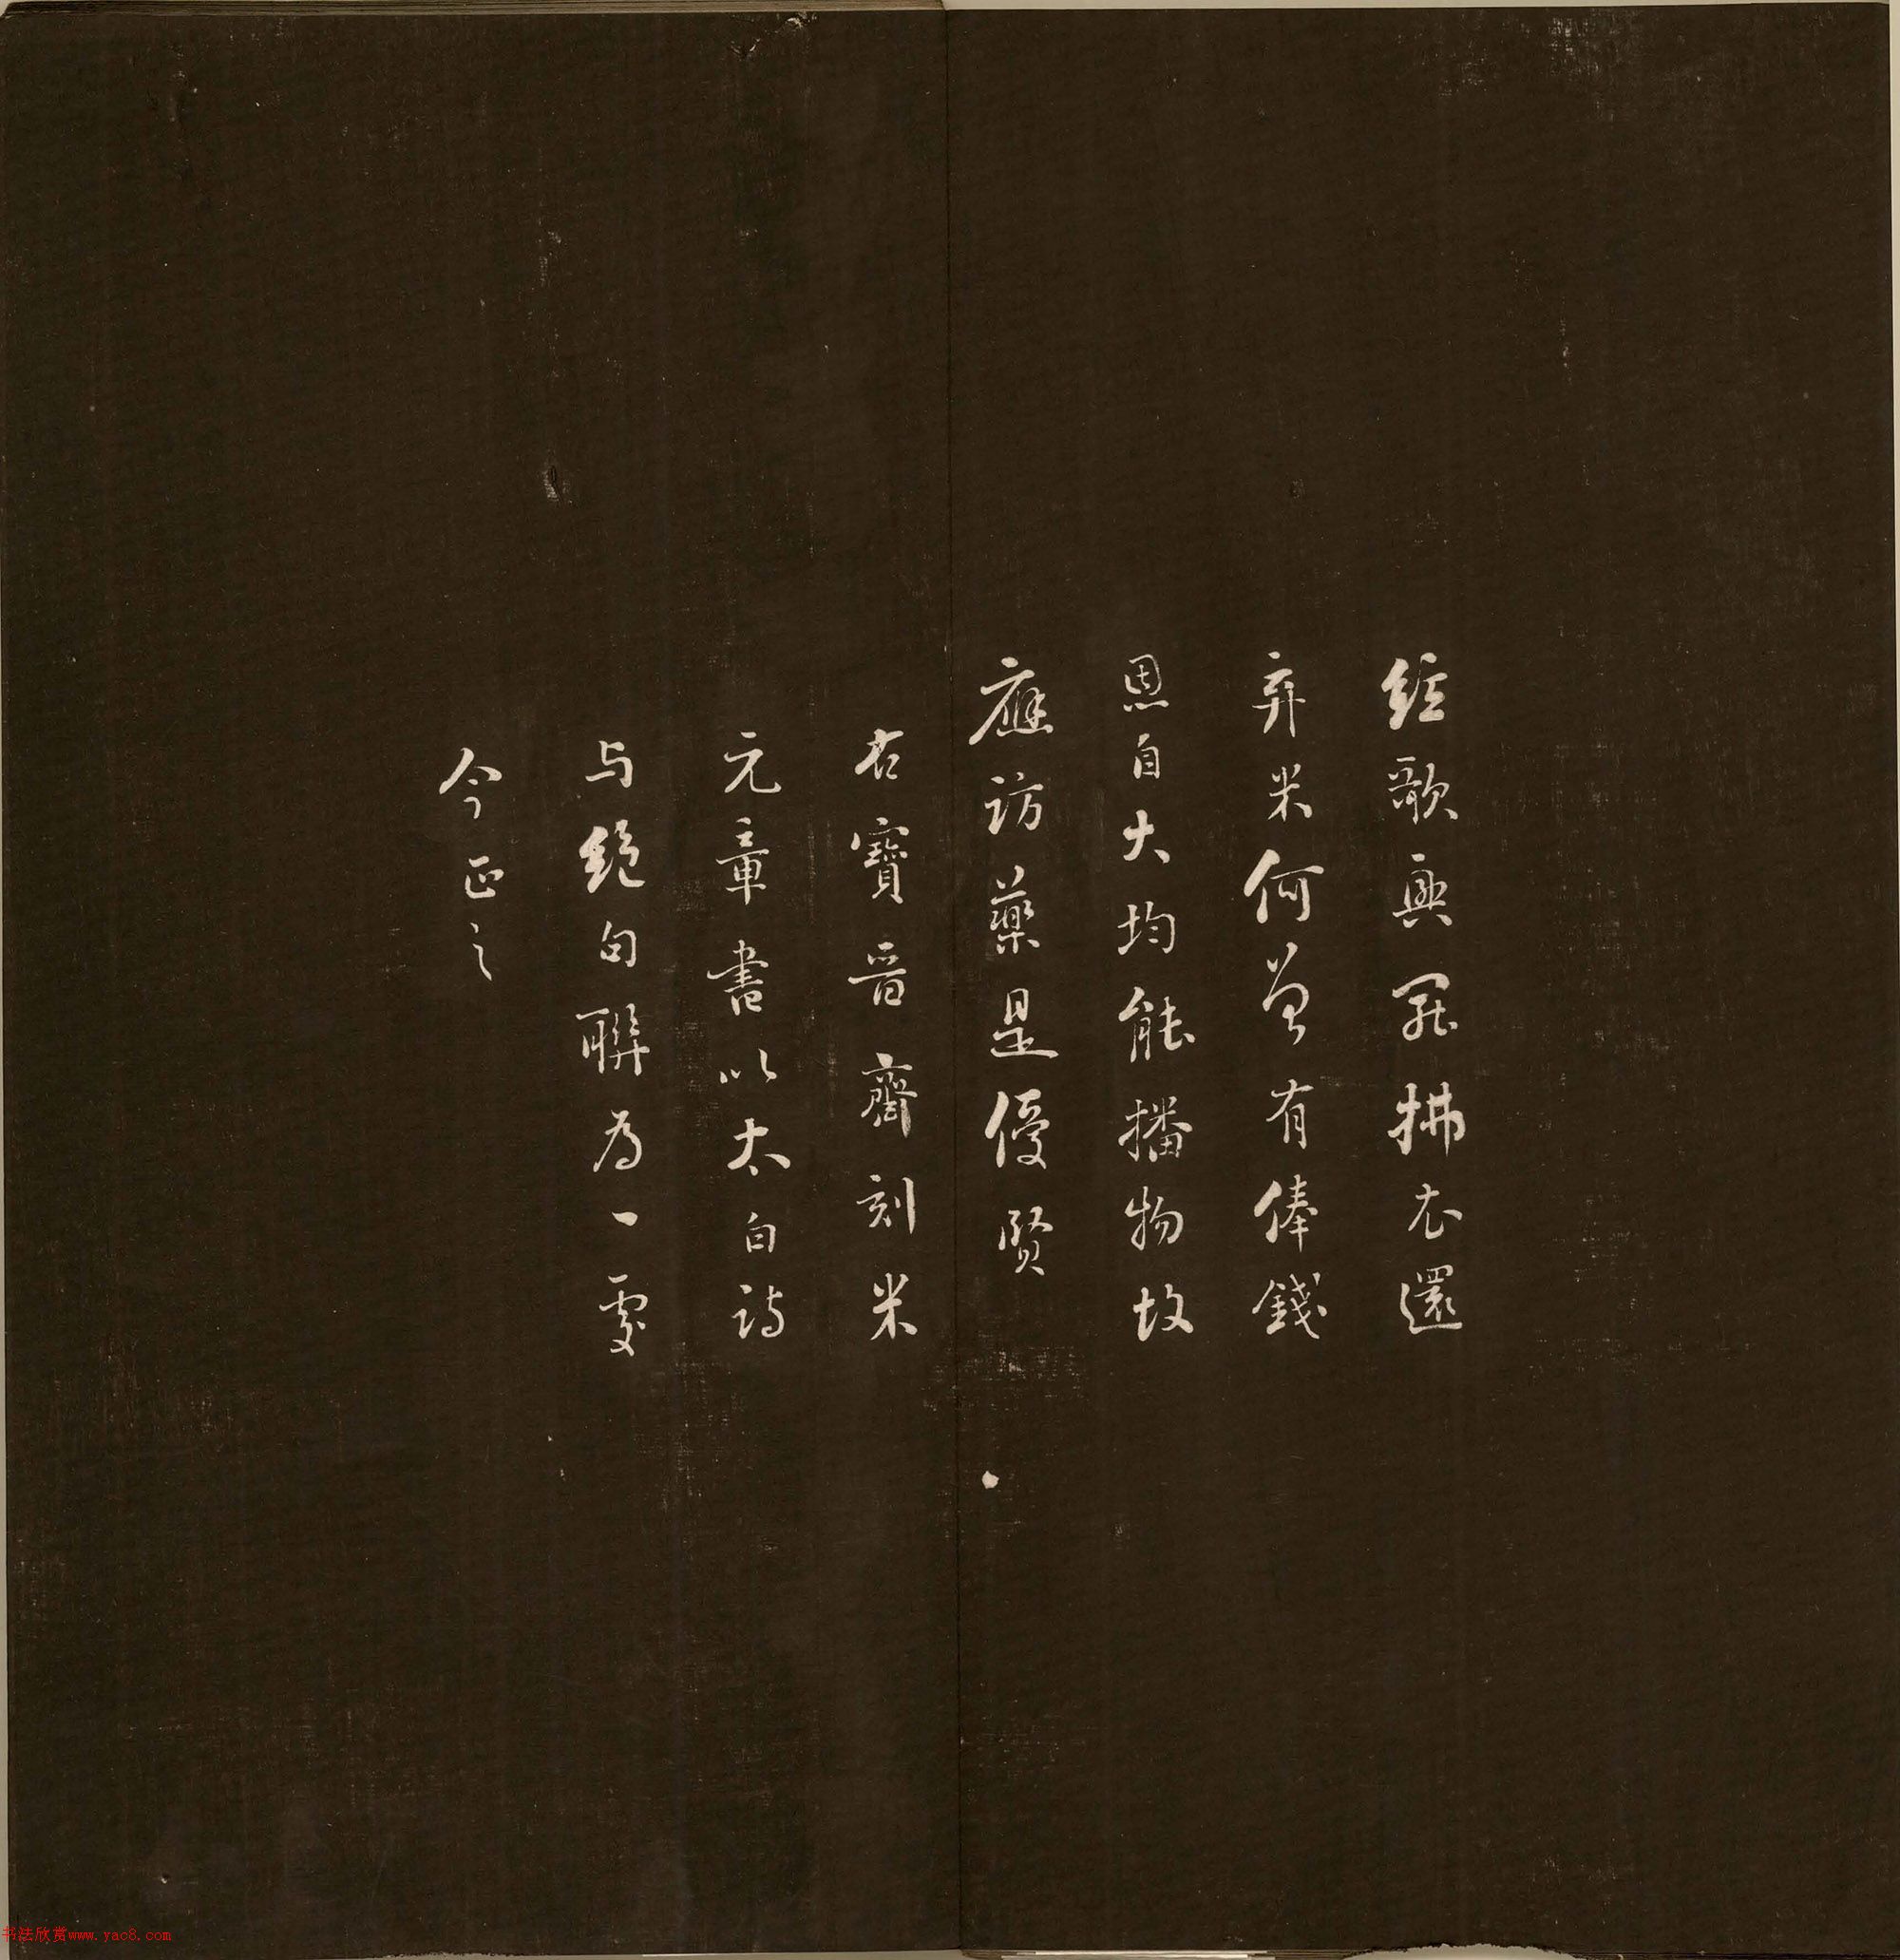 絃歌興罷拂衣還
弃米何曾有俸錢
恩自大均能播物政
應訪藥是優賢
右寶晉齋刻米
元章書以太白詩
与絕句聯為一處
今正之
书法欣赏www.yac8.com